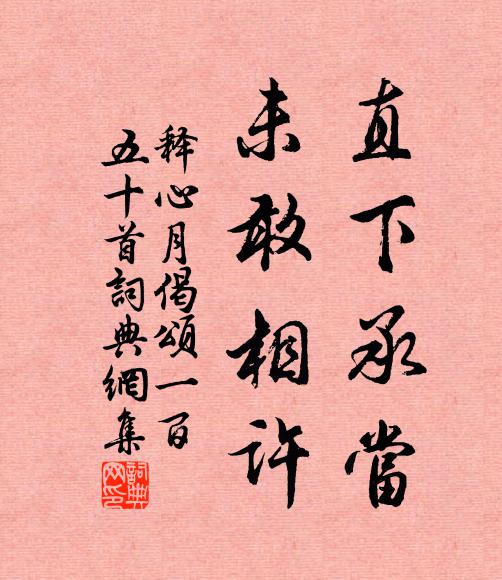 直下承當
未敢相許
释心月偈頌一百
五十首詞典網集
詞典
网印